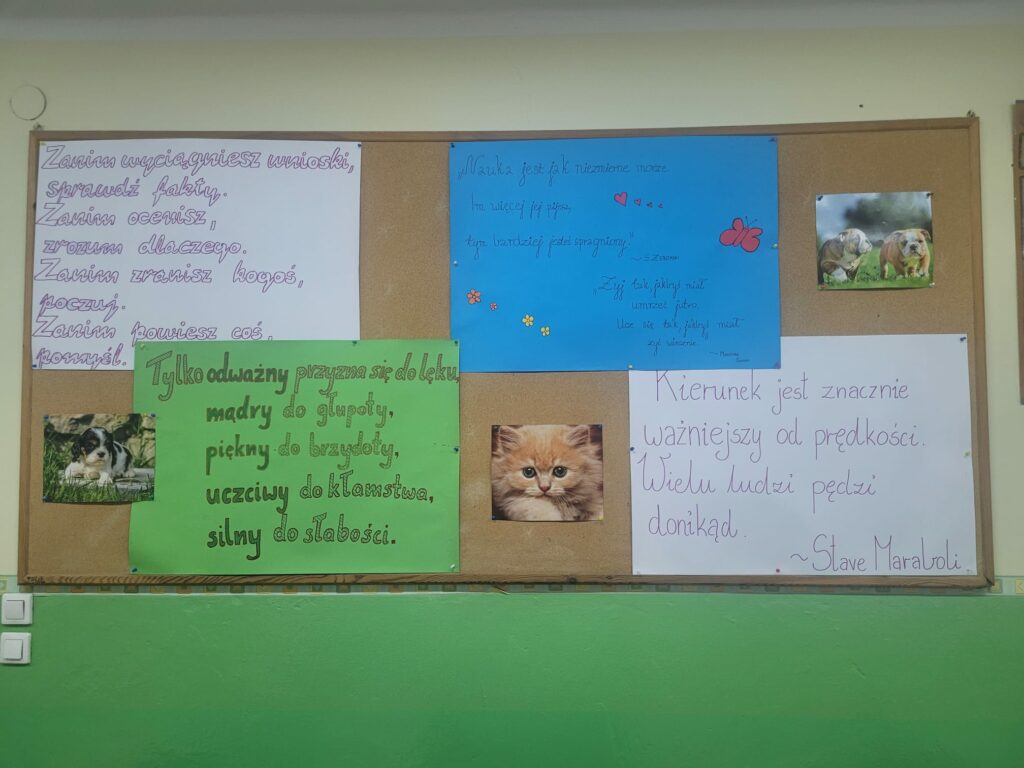 Zanim wyciągniesz wnioski,
sprawdź fakty.
Zanim ocenisz,
zrozum dlaczego.
Zanim zranisz kogoś,
poczuj.
Zanim powiesz coś,
pomyśl.
Tylko odważny przyzna się do lęku,
mądry do głupoty,
piękny do brzydoty,
uczciwy do kłamstwa,
silny do słabości.
„Nauka jest jak niezmierne morze.
Im więcej jej pijesz,
tym bardziej jesteś spragniony."
~ S. Żeromski
„Żyj tak, jakbyś miał
umrzeć jutro.
Ucz się tak, jakbyś miał
żyć wiecznie.
~ Mahatma
Kierunek jest znacznie
ważniejszy od prędkości.
Wielu ludzi pędzi
donikąd.
~Stave Maraboli